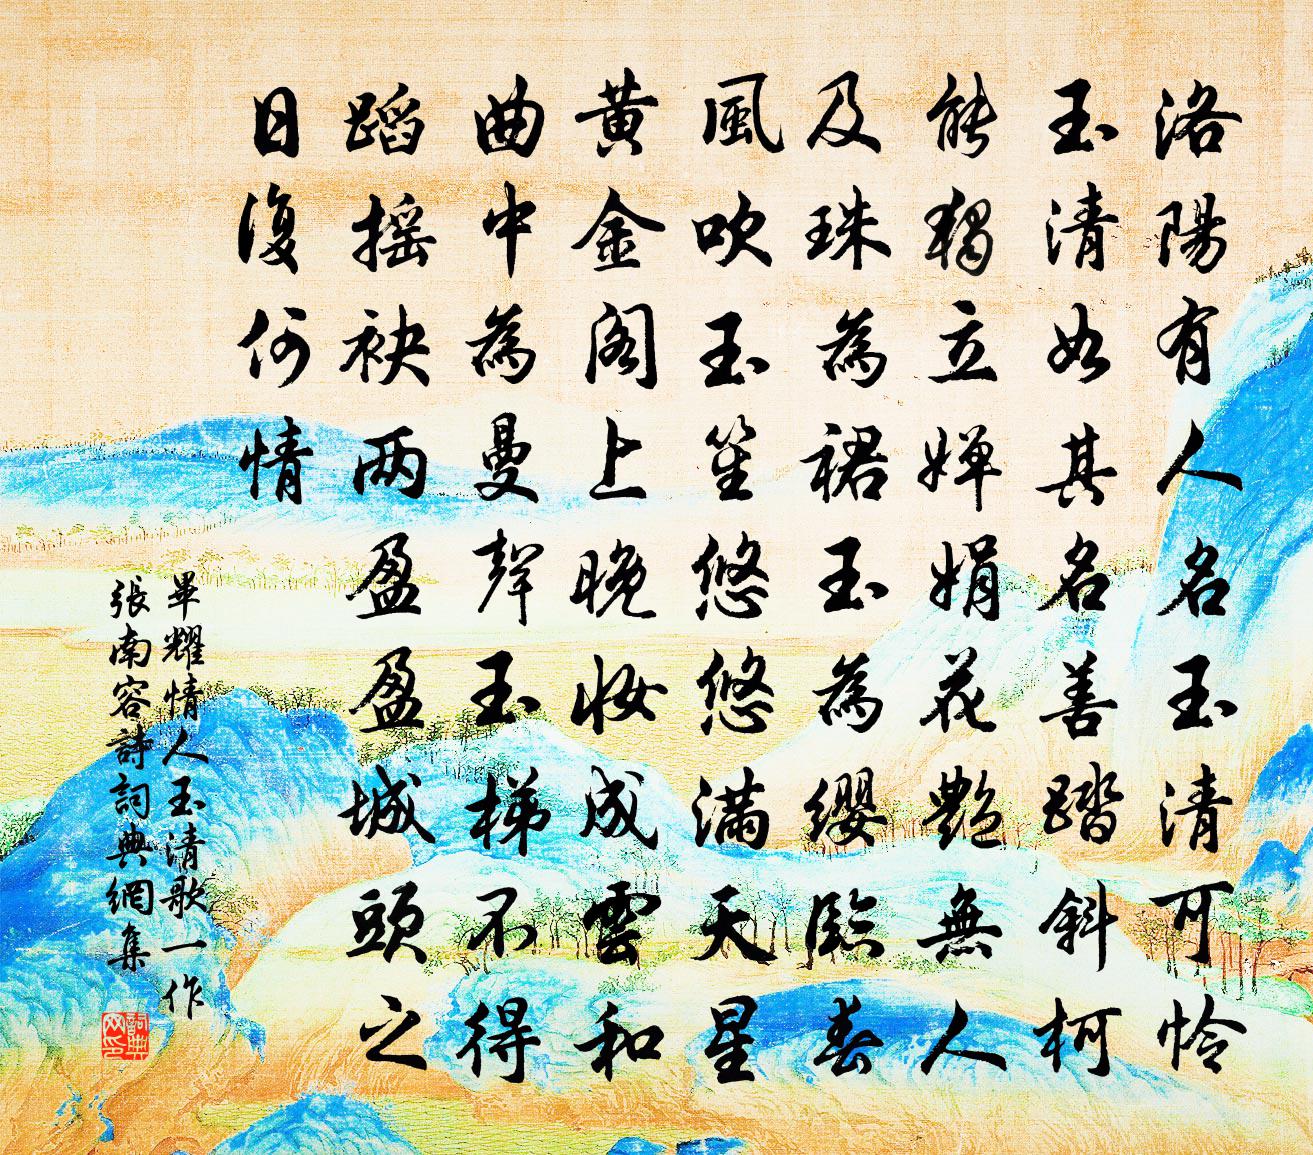 洛陽有人名玉清可怜
玉清如其名善踏斜柯
能獨立婵娟花艷無人
及珠為裙玉為缨臨春
風吹玉笙悠悠满天星
黄金阁上晚妆成雲和
曲中為曼聲玉梯不得
蹈摇袂两盈盈城頭之
日復何情
畢耀情人玉清歌一作
張南容詩詞典網集